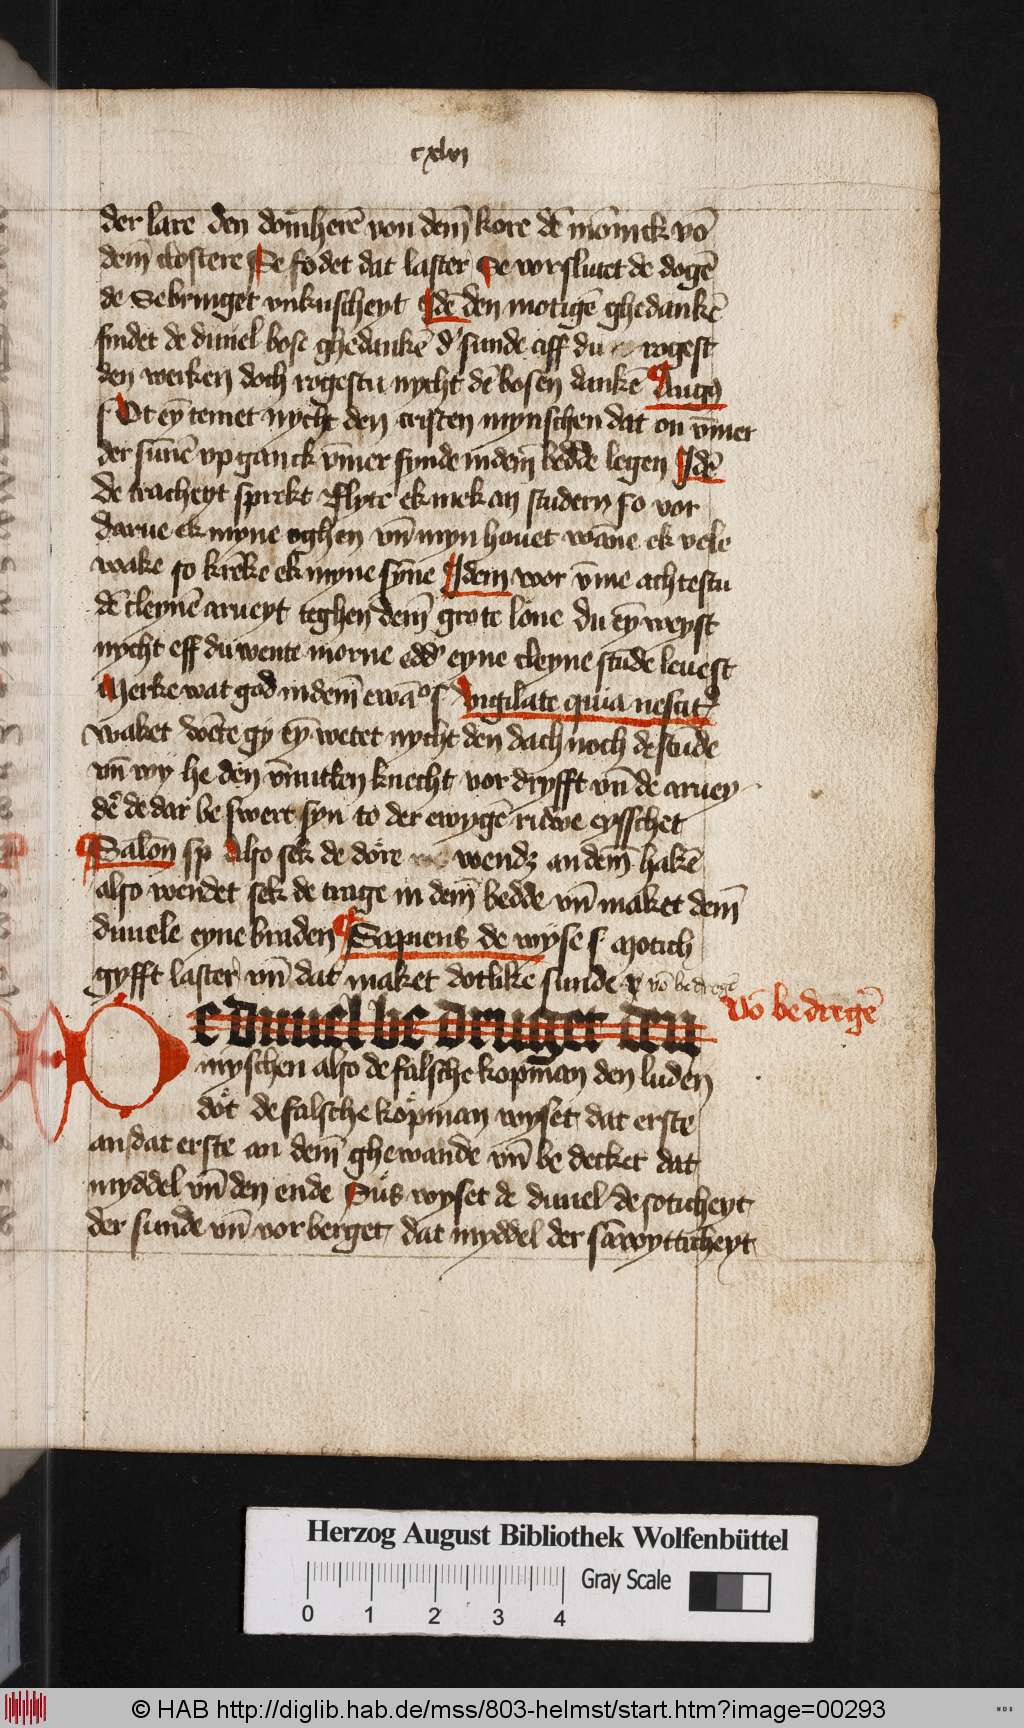 cxlvi
der lare den domherē von dem̄ kore dē mōnick vō
dem̄ clostere Se fodet dat laster Se vorsluet de dogē
de Se bringet vnkuscheyt Idē den motigē ghedankē
findet de duuel bose ghedankē d' sunde aff du rogest
den werken doch rogestu nycht dē bosen dankē Augꝯ
s Ot eȳ temet nycht den cristen mynschen dat on v̄mer
der sūnē vp ganck v̄mer fynde in dem̄ bedde legen Idē
de tracheyt sprekt Flyte ek mek an studern so vor
darue ek myne oghen vn̄ myn houet wāne ek vele
wake so krēke ek myne sȳne Idem wor v̄me achtestu
dē cleynē arueyt teghen dem̄ grote lone du eȳ weyst
nycht eff du wente morne edd' eyne cleyne stūde leuest
Merke wat god in dem̄ ewā° s vigilate quia nescit'
waket wēte gy eȳ wetet nycht den dach noch de stūde
vn̄ wy he den v̄nutken knecht vor dryfft vn̄ de aruey
dē de dar be swert syn to der ewygē rūwe eysschet
Salon sp also sek de dore wendꝫ an dem̄ hakē
also wendet sek de trage in dem̄ bedde vn̄ maket dem̄
duuele eyne braden Sapiens de wyse s Motich
gyfft laster vn̄ dat maket dotlike sunde vō bedregē
vō bedregē
De duuel be druget den
myschen also de falsche kopman den luden
dot de falsche kopman wyset dat erste
an dat erste an dem̄ ghewande vn̄ be decket dat
myddel vn̄ den ende Sus wyset de duuel de soticheyt
der sunde vn̄ vor berget dat myddel der sāwytticheyt
Herzog August Bibliothek Wolfenbüttel
Gray Scale
0 1 2 3 4
© HAB http://diglib.hab.de/mss/803-helmst/start.htm?image=00293